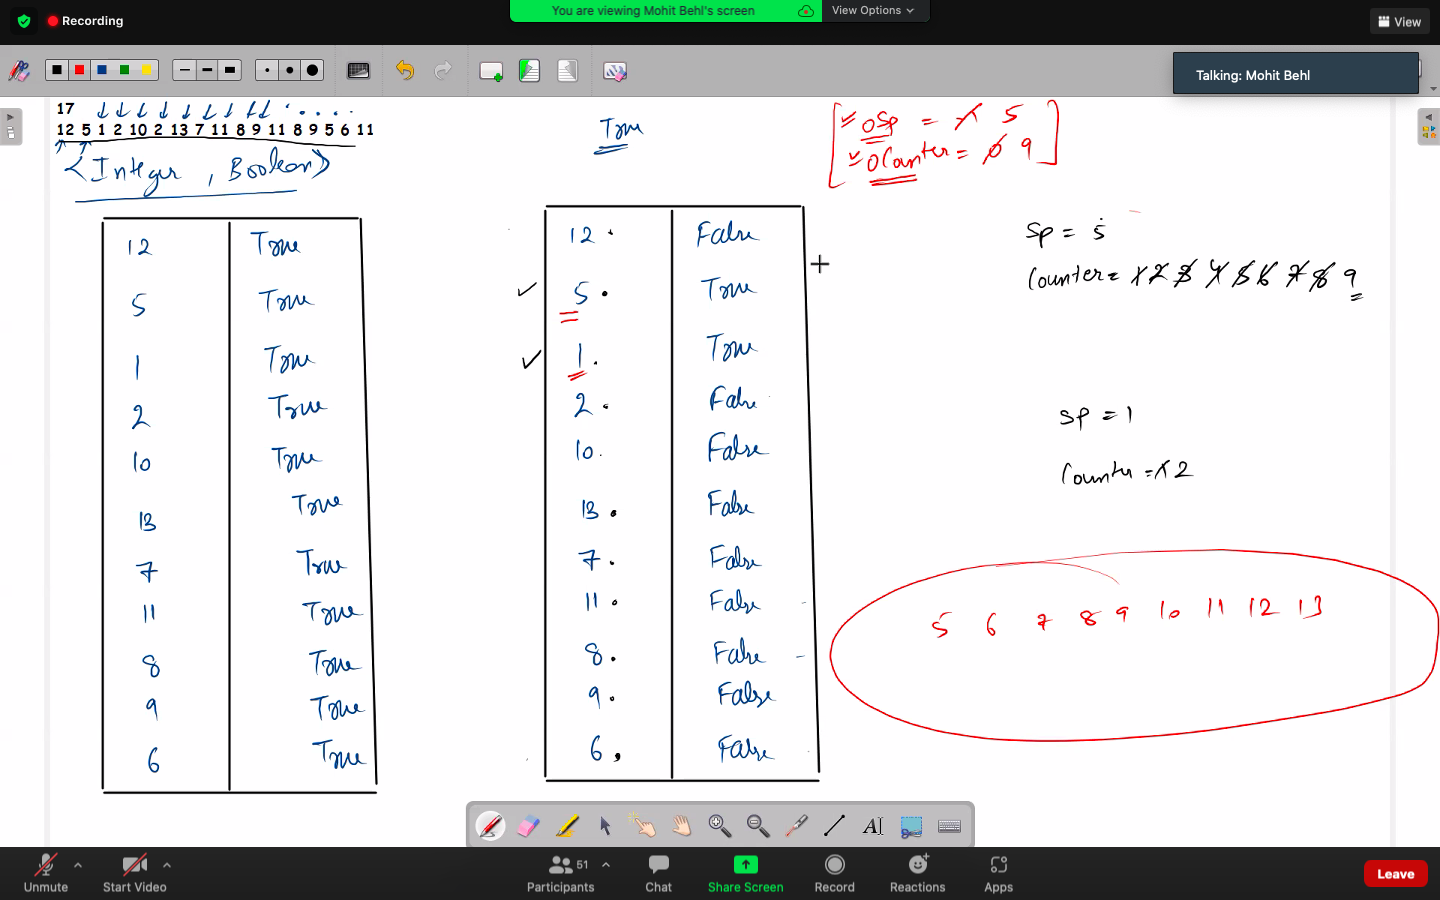 Recording
You are viewing Mohit Behl's screen
View Options
View
Talking: Mohit Behl
17
12 5 1 2 10 2 13 7 11 8 9 11 8 9 5 6 11
<Integer , Boolean>
True
OSp = 1 5
OCounter = 0 9
12 True
5 True
1 True
2 True
10 True
13 True
7 True
11 True
8 True
9 True
6 True
12 False
5 True
1 True
2 False
10 False
13 False
7 False
11 False
8 False
9 False
6 False
Sp = 5
Counter = 1 2 3 4 5 6 7 8 9
Sp = 1
Counter = 1 2
5 6 7 8 9 10 11 12 13
A
Unmute
Start Video
51
Participants
Chat
Share Screen
Record
Reactions
Apps
Leave